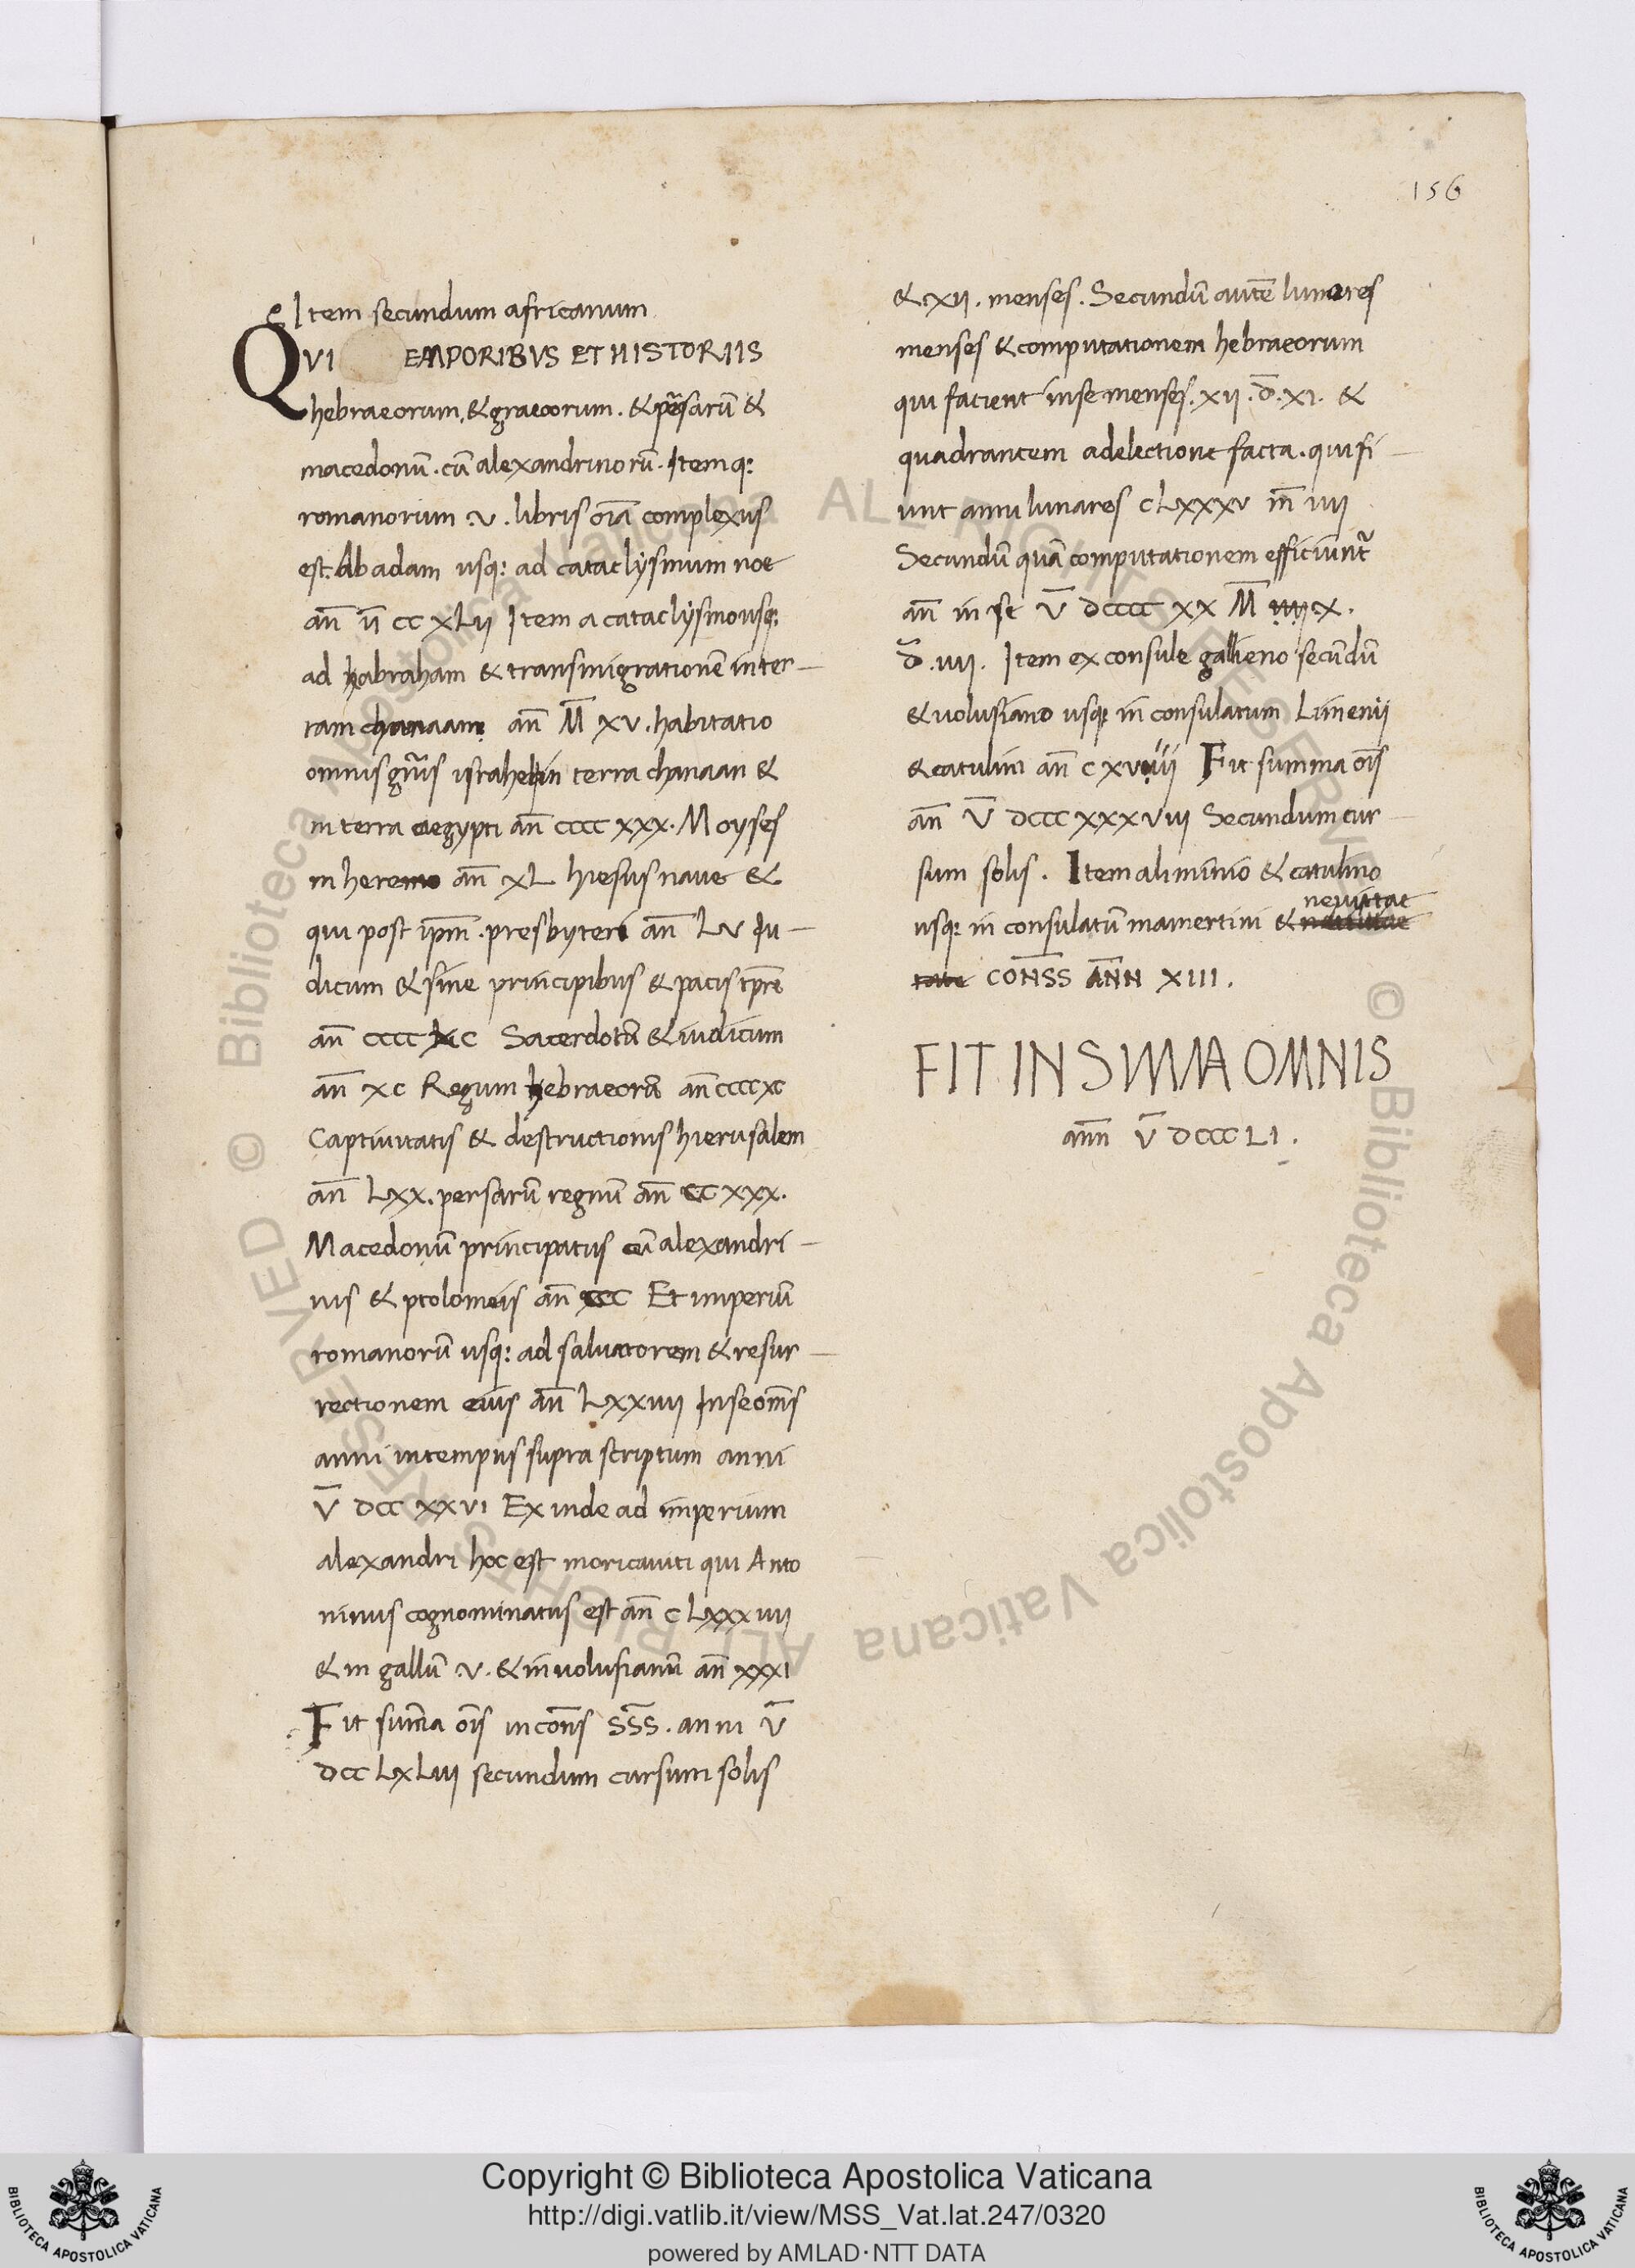 156
Item secundum africanum
QVI EMPORIBVS ET HISTORIIS
hebraeorum. & graecorum. & persarū &
macedonū. cū alexandrinorū. Itemq:
romanorum .v. libris oīa complexus
est. Ab adam usq: ad cataclysmum noe
an̄ īī CC XLII Item a cataclysmo usq:
ad habraham & transmigrationē in ter-
ram chanaam an̄ M̄ XV. habitatio
omnis gn̄is israhel in terra chanaan &
in terra aegypti an̄ CCCC XXX. Moyses
in heremo an̄ XL hiesus naue &
qui post ip̄m. presbyteri an̄ LV Iu-
dicum & sine principibus & pacis tp̄re
an̄ CCCC XC Sacerdotū & iudicum
an̄ XC Regum hebraeorū an̄ CCCC XC
Captiuitatis & destructionis hierusalem
an̄ LXX. persarū regnū an̄ CC XXX.
Macedonū principatus cū alexandri-
nis & ptolomeis an̄ CCC Et imperiū
romanorū usq: ad saluatorem & resur-
rectionem eius an̄ LXXIIII In se om̄s
anni in tempus supra scriptum anni
V̄ DCC XXVI Ex inde ad imperium
alexandri hoc est moricauiti qui Anto
ninus cognominatus est an̄ C LXXXIIII
& in gallū .v. & in uolusianū an̄ XXXI
Fit sum̄a oīs in con̄s SS̄S. anni V̄
DCC LXLIII secundum cursum solis
& XII. menses. Secundū autē lunares
menses & computationem hebraeorum
qui facient in se menses. XII. D̄. XI. &
quadrantem adelectione facta. qui fi-
unt anni lunares CLXXXV m̄ IIII
Secundū quā computationem efficiunt̄
an̄ in se V̄ DCCCC XX M̄ X.
D̄. IIII. Item ex consule gallieno secundū
& uolusiano usq: in consulatum Limenii
& catulini an̄ C Fit summa oīs
an̄ V̄ DCCC XXXVIII Secundum cur-
sum solis. Item a liminio & catulino
usq: in consulatū mamertini & neuittae
CONSS ANN XIII.
FIT IN SVMMA OMNIS
ann̄ V̄ DCCC LI.
© Biblioteca Apostolica Vaticana ALL RIGHTS RESERVED
© Biblioteca Apostolica Vaticana ALL RIGHTS RESERVED
Copyright © Biblioteca Apostolica Vaticana
http://digi.vatlib.it/view/MSS_Vat.lat.247/0320
powered by AMLAD·NTT DATA
BIBLIOTECA APOSTOLICA VATICANA
BIBLIOTECA APOSTOLICA VATICANA